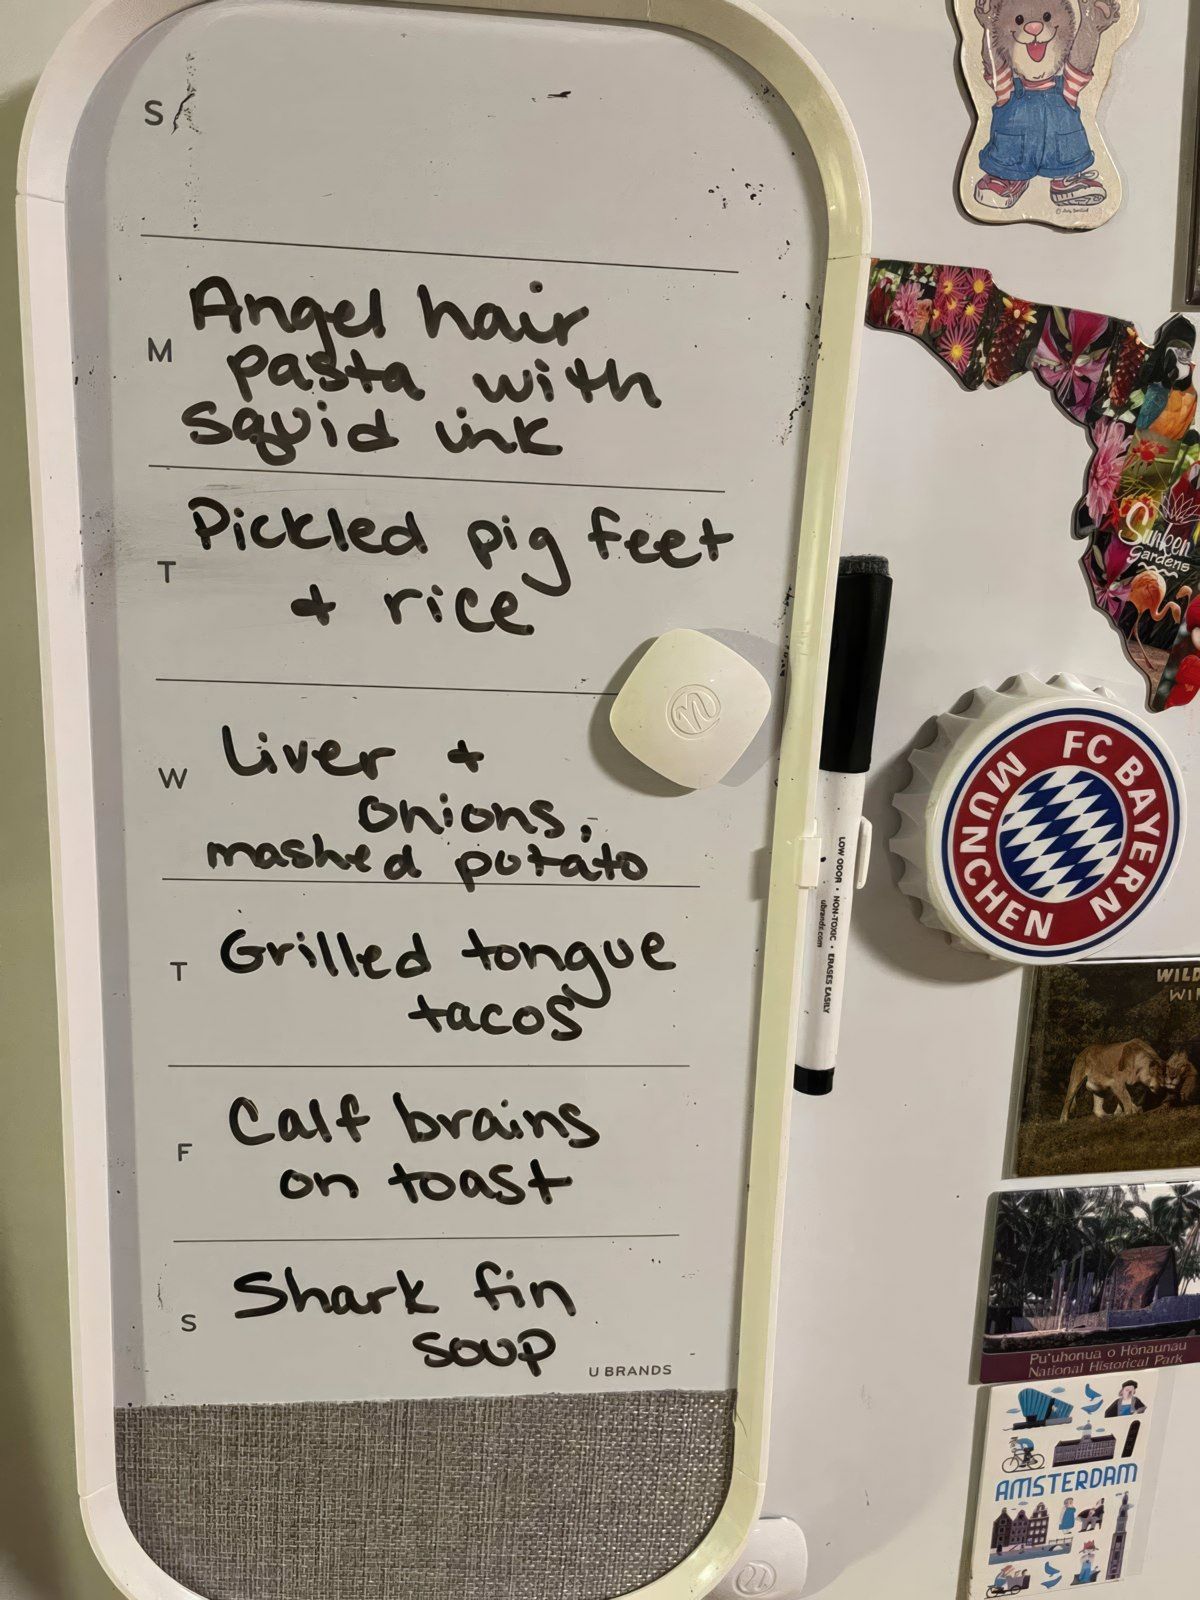 S
M
Angel hair
pasta with
squid ink
T
Pickled pig feet
+ rice
W
Liver +
onions,
mashed potato
T
Grilled tongue
tacos
F
Calf brains
on toast
S
Shark fin
soup
U BRANDS
LOW ODOR • NON-TOXIC • ERASES EASILY
ubrands.com
Sunken
Gardens
FC BAYERN
MÜNCHEN
WILD
Pu'uhonua o Hōnaunau
National Historical Park
AMSTERDAM